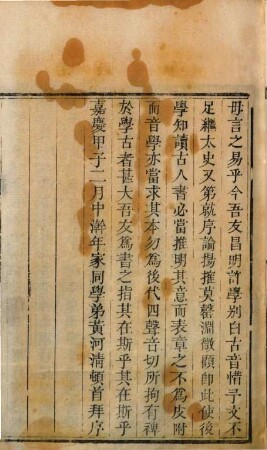 毋言之易乎今吾友昌明許學别白古音惜予文不
足繼太史又第就序論揚搉莫罄淵微顧即此使後
學知讀古人書必當推明其意而表章之不為皮附
而音學亦當求其本勿為後代四聲音切所拘有裨
於學古者甚大吾友為書之指其在斯乎其在斯乎
嘉慶甲子二月中澣年家同學弟黃河清頓首拜序